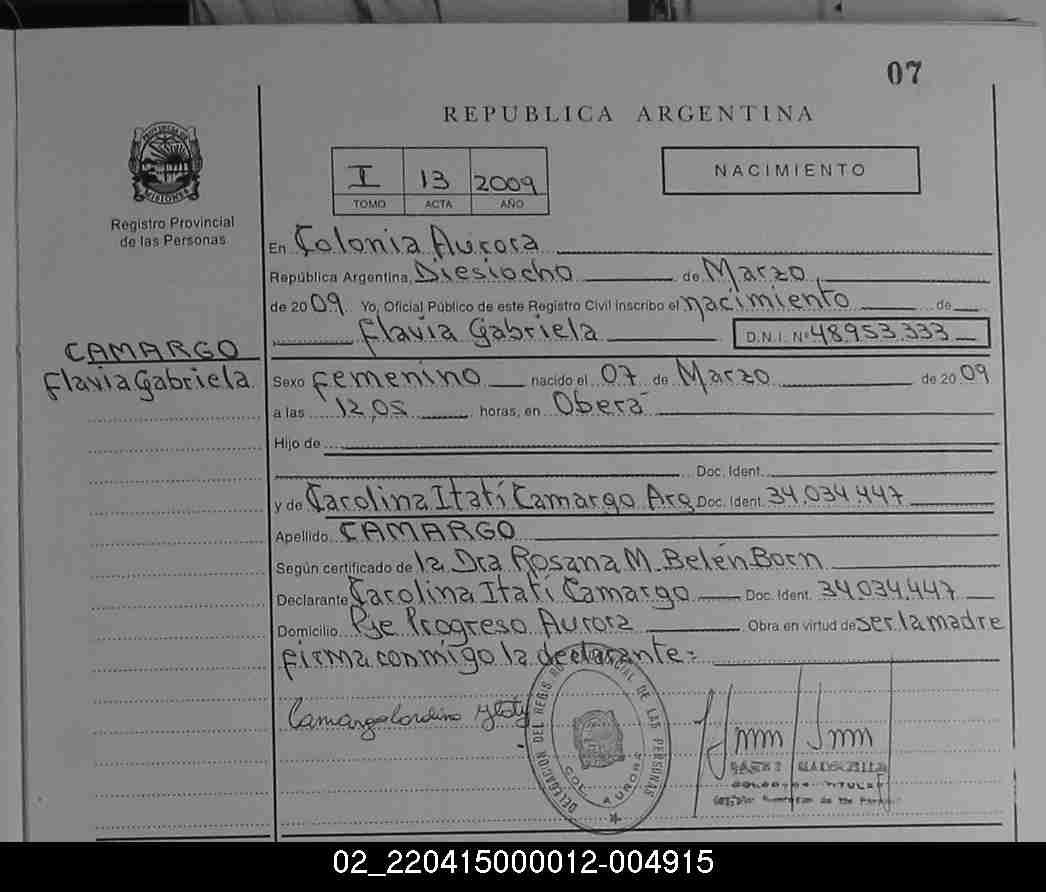 07
REPUBLICA ARGENTINA
PROVINCIA DE MISIONES
Registro Provincial
de las Personas
I 13 2009
TOMO ACTA AÑO
NACIMIENTO
En Colonia Aurora
República Argentina, Diesiocho de Marzo
de 2009. Yo, Oficial Público de este Registro Civil inscribo el nacimiento de
Flavia Gabriela D.N.I. Nº 48.953.333
CAMARGO
Flavia Gabriela
Sexo femenino nacido el 07 de Marzo de 2009
a las 12,05 horas, en Oberá
Hijo de
Doc. Ident.
y de Carolina Itatí Camargo Arg Doc. Ident. 34.034.447
Apellido CAMARGO
Según certificado de la Dra Rosana M. Belén Born
Declarante Carolina Itatí Camargo Doc. Ident. 34.034.447
Domicilio Pje Progreso Aurora Obra en virtud de ser la madre
firma conmigo la declarante:
Camargo Carolina Itatí
DELEGACION DEL REGISTRO PROVINCIAL DE LAS PERSONAS
COL. AURORA
TITULAR
02_220415000012-004915